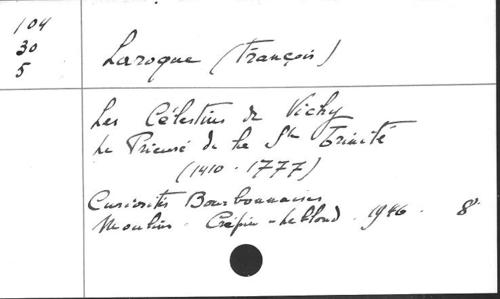 104
30
5
Laroque (François)
Les Célestins de Vichy
Le Prieuré de la Ste Trinité
(1410 - 1777)
Curiosités Bourbonnaises
Moulins - Crépin-Leblond - 1946 - 8°